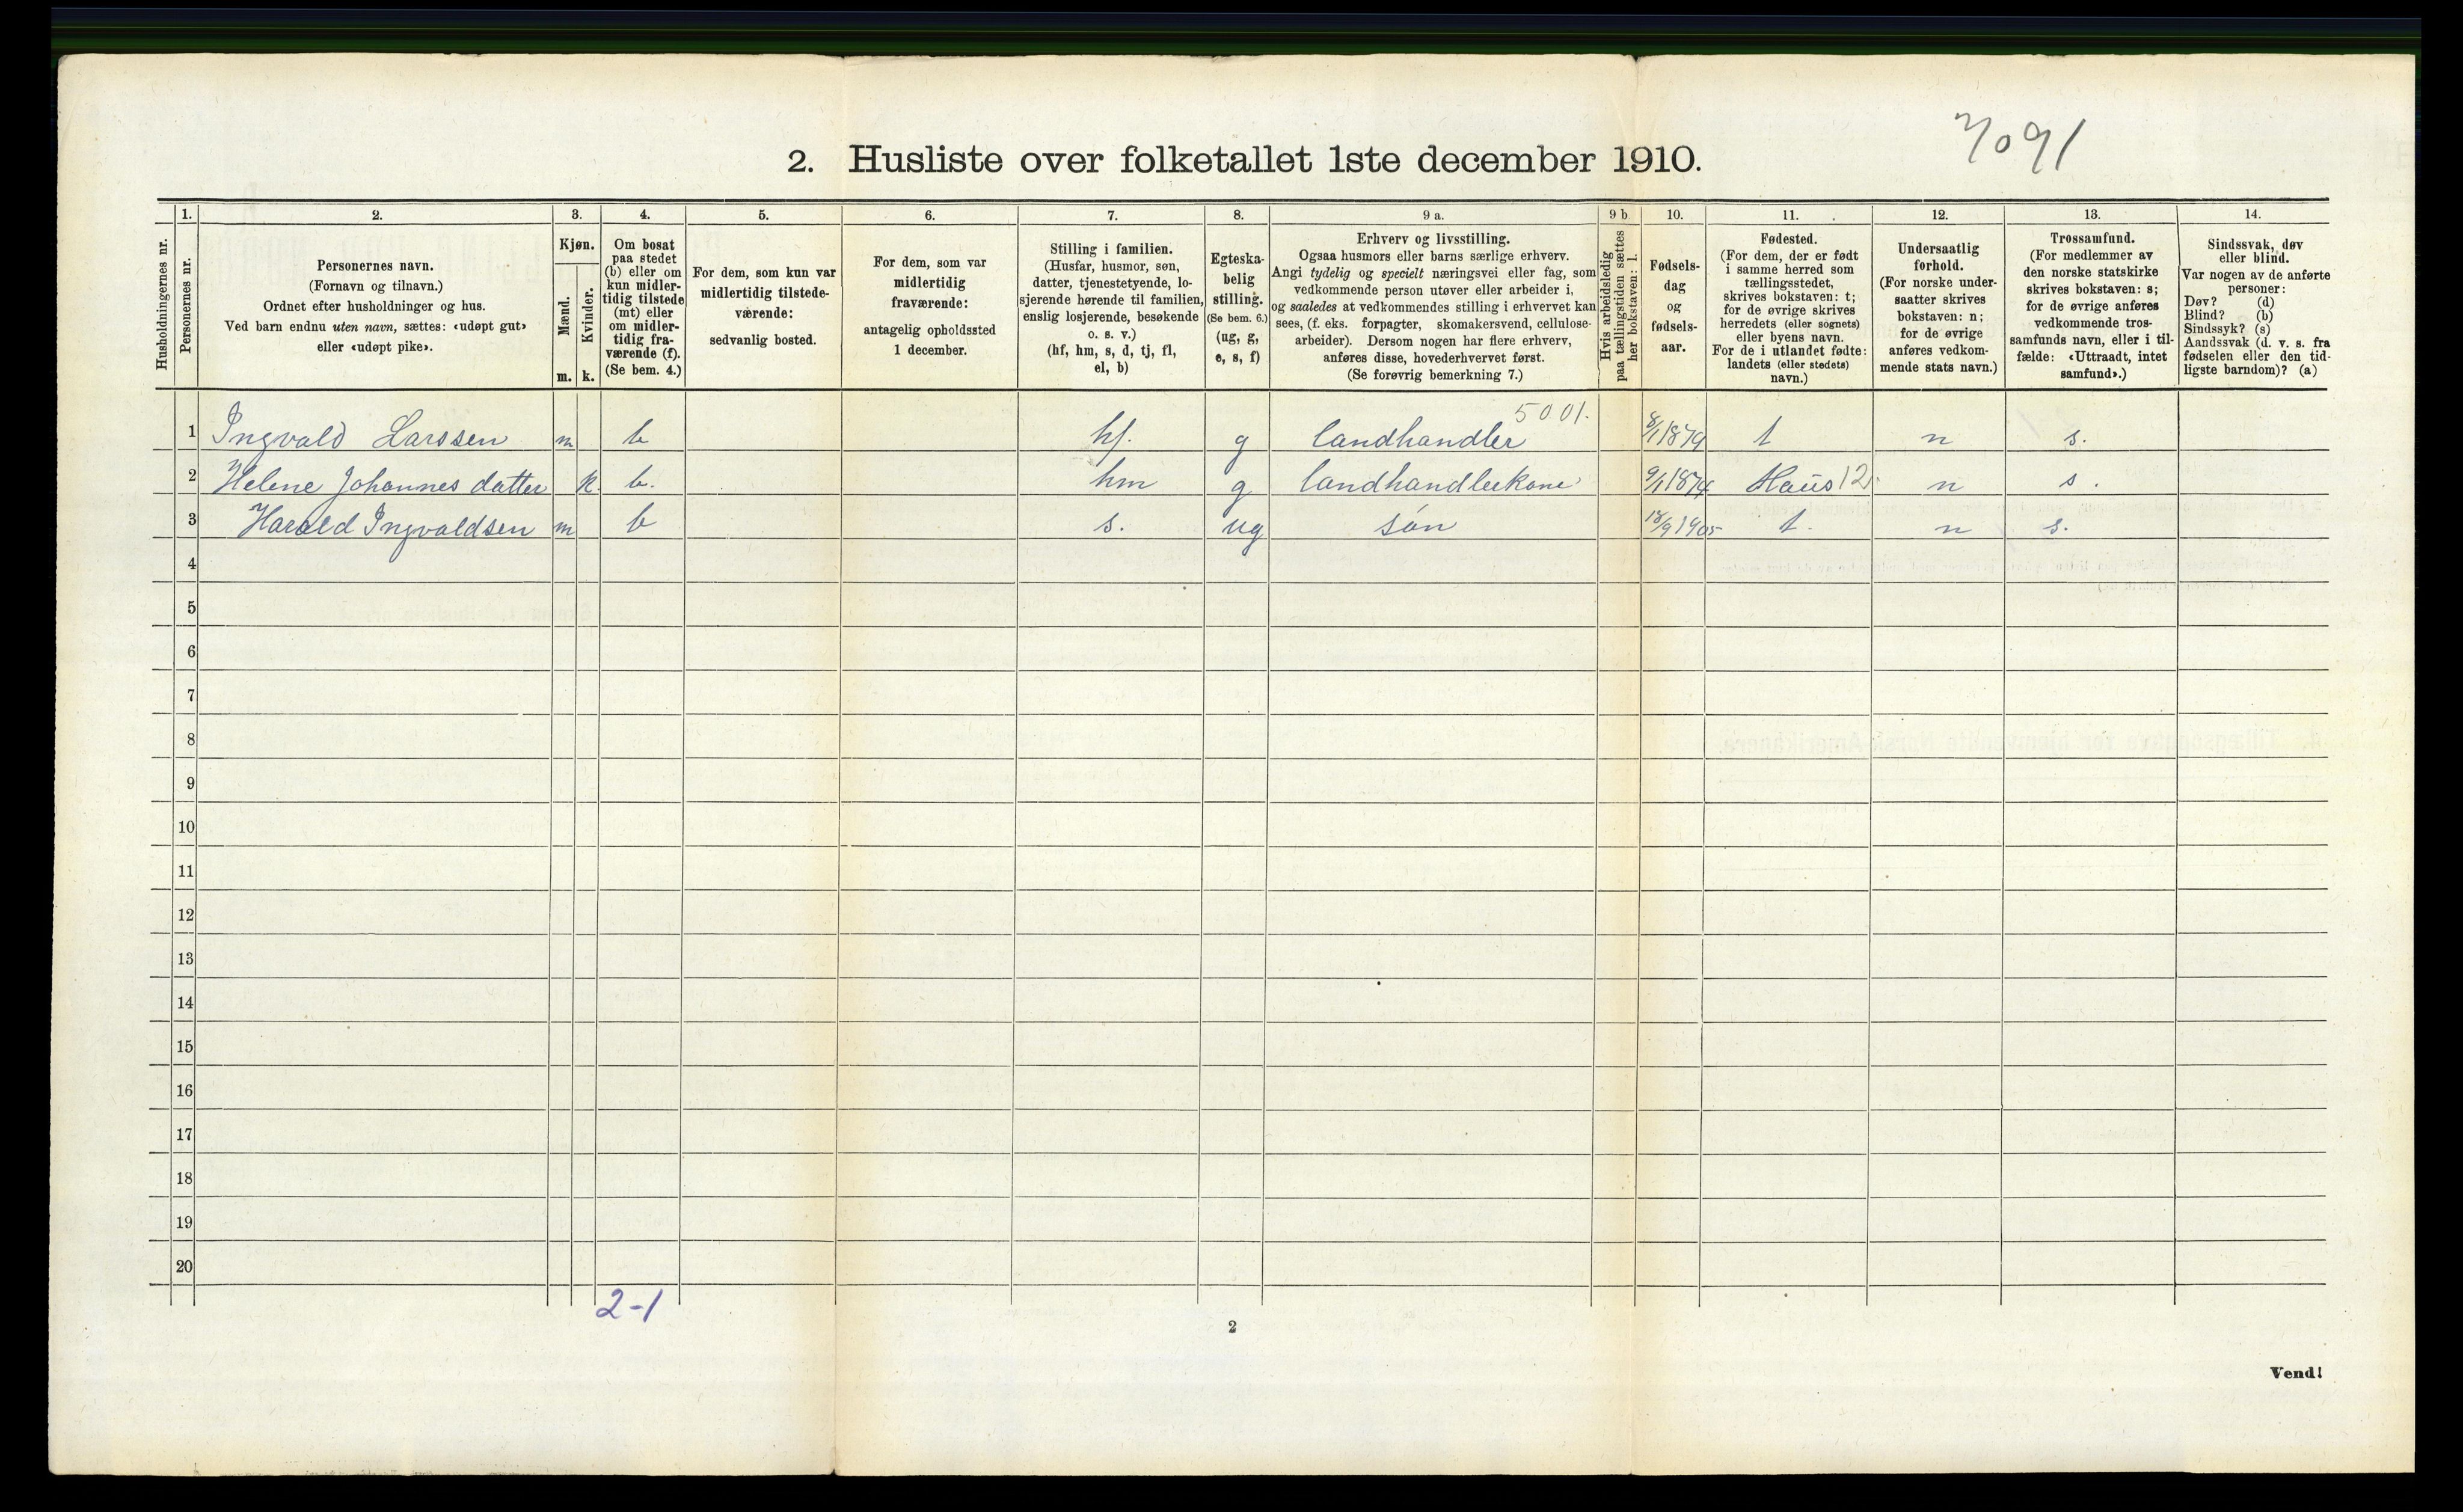 7091
2. Husliste over folketallet 1ste december 1910.
1. 2. 3. 4. 5. 6. 7. 8. 9 a. 9 b 10. 11. 12. 13. 14.
Husholdningernes nr.
Personernes nr.
Personernes navn.
(Fornavn og tilnavn.)
Ordnet efter husholdninger og hus.
Ved barn endnu uten navn, sættes: «udøpt gut»
eller «udøpt pike».
Kjøn.
Mænd.
Kvinder.
m. k.
Om bosat
paa stedet
(b) eller om
kun midler-
tidig tilstede
(mt) eller
om midler-
tidig fra-
værende (f).
(Se bem. 4.)
For dem, som kun var
midlertidig tilstede-
værende:
sedvanlig bosted.
For dem, som var
midlertidig
fraværende:
antagelig opholdssted
1 december.
Stilling i familien.
(Husfar, husmor, søn,
datter, tjenestetyende, lo-
sjerende hørende til familien,
enslig losjerende, besøkende
o. s. v.)
(hf, hm, s, d, tj, fl,
el, b)
Egteska-
belig
stilling.
(Se bem. 6.)
(ug, g,
e, s, f)
Erhverv og livsstilling.
Ogsaa husmors eller barns særlige erhverv.
Angi tydelig og specielt næringsvei eller fag, som
vedkommende person utøver eller arbeider i,
og saaledes at vedkommendes stilling i erhvervet kan
sees, (f. eks. forpagter, skomakersvend, cellulose-
arbeider). Dersom nogen har flere erhverv,
anføres disse, hovederhvervet først.
(Se forøvrig bemerkning 7.)
Hvis arbeidsledig
paa tællingstiden sættes
her bokstaven: l.
Fødsels-
dag
og
fødsels-
aar.
Fødested.
(For dem, der er født
i samme herred som
tællingsstedet,
skrives bokstaven: t;
for de øvrige skrives
herredets (eller sognets)
eller byens navn.
For de i utlandet fødte:
landets (eller stedets)
navn.)
Undersaatlig
forhold.
(For norske under-
saatter skrives
bokstaven: n;
for de øvrige
anføres vedkom-
mende stats navn.)
Trossamfund.
(For medlemmer av
den norske statskirke
skrives bokstaven: s;
for de øvrige anføres
vedkommende tros-
samfunds navn, eller i til-
fælde: «Uttraadt, intet
samfund».)
Sindssvak, døv
eller blind.
Var nogen av de anførte
personer:
Døv? (d)
Blind? (b)
Sindssyk? (s)
Aandssvak (d. v. s. fra
fødselen eller den tid-
ligste barndom)? (a)
5001.
1 Ingvald Larssen m b hf. g landhandler 8/1 1879 t n s.
2 Helene Johannes datter k. b. hm g landhandlerkone 9/1 1874 Haus 12. n s.
3 Harald Ingvaldsen m b s. ug søn 18/9 1905 t. n s.
4
5
6
7
8
9
10
11
12
13
14
15
16
17
18
19
20
2-1
2
Vend!